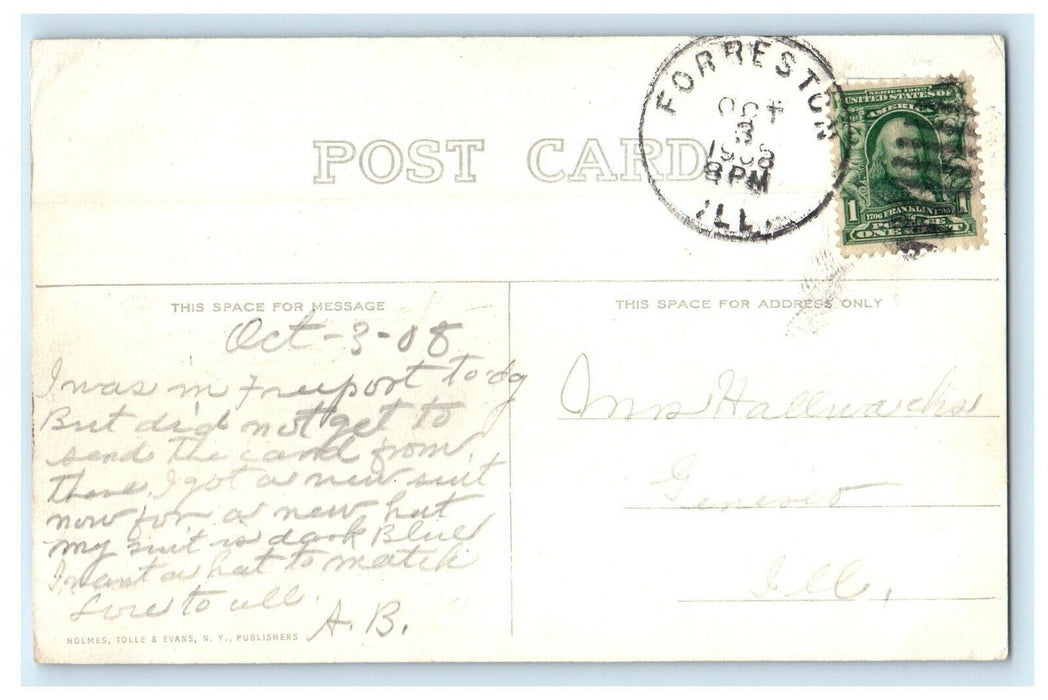 POST CARD
FORRESTON
OCT
3
1908
8 PM
ILL.
SERIES 1902
UNITED STATES OF
AMERICA
1 1706 FRANKLIN 1
POSTAGE
ONE CENT
THIS SPACE FOR MESSAGE
Oct-3-08
I was in Freeport to-dg
But did not get to
send the card from
there. I got a new suit
now for a new hat
my suit is dark Blue
I want a hat to match
Love to all.
A. B.
HOLMES, TOLLE & EVANS, N. Y., PUBLISHERS
THIS SPACE FOR ADDRESS ONLY
Mrs Hallwachs
Geneseo
Ill.